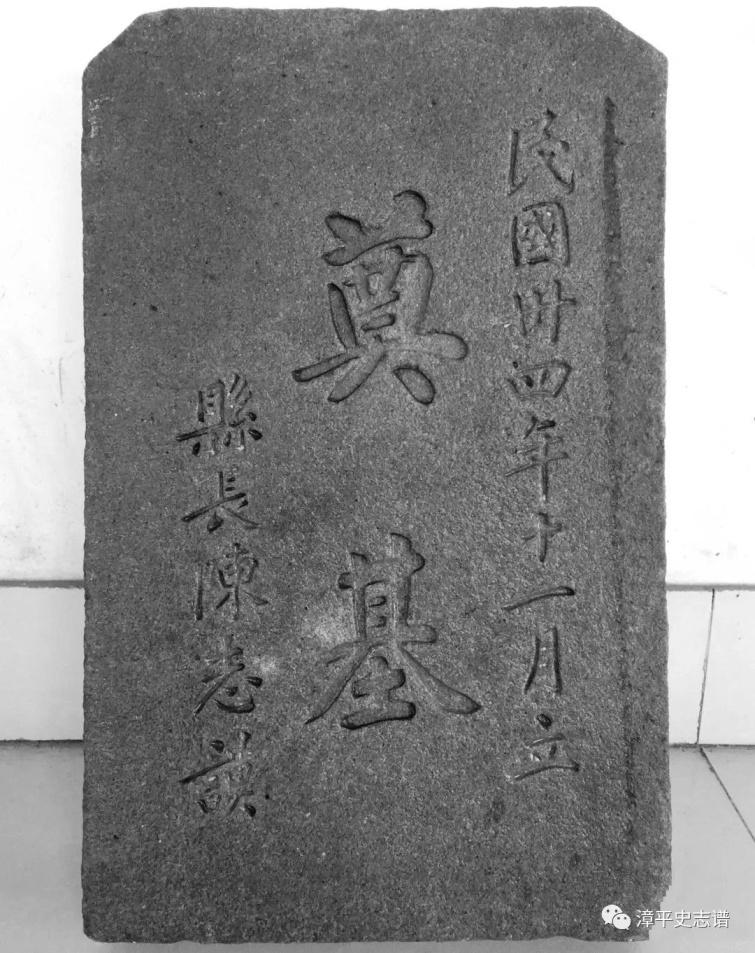 民國卅四年十一月立
奠基
縣長陳志謨
漳平史志谱